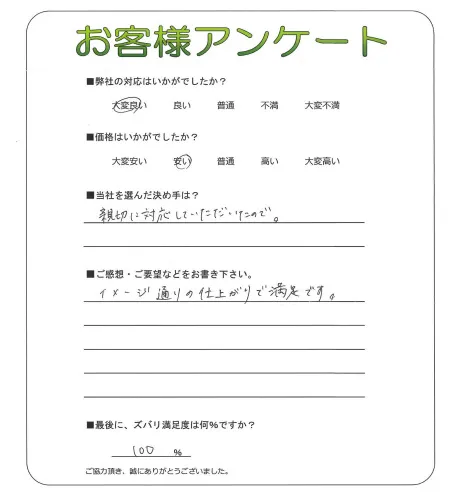 お客様アンケート
■弊社の対応はいかがでしたか？
大変良い 良い 普通 不満 大変不満
■価格はいかがでしたか？
大変安い 安い 普通 高い 大変高い
■当社を選んだ決め手は？
親切に対応していただいたので。
■ご感想・ご要望などをお書き下さい。
イメージ通りの仕上がりで満足です。
■最後に、ズバリ満足度は何％ですか？
100 ％
ご協力頂き、誠にありがとうございました。